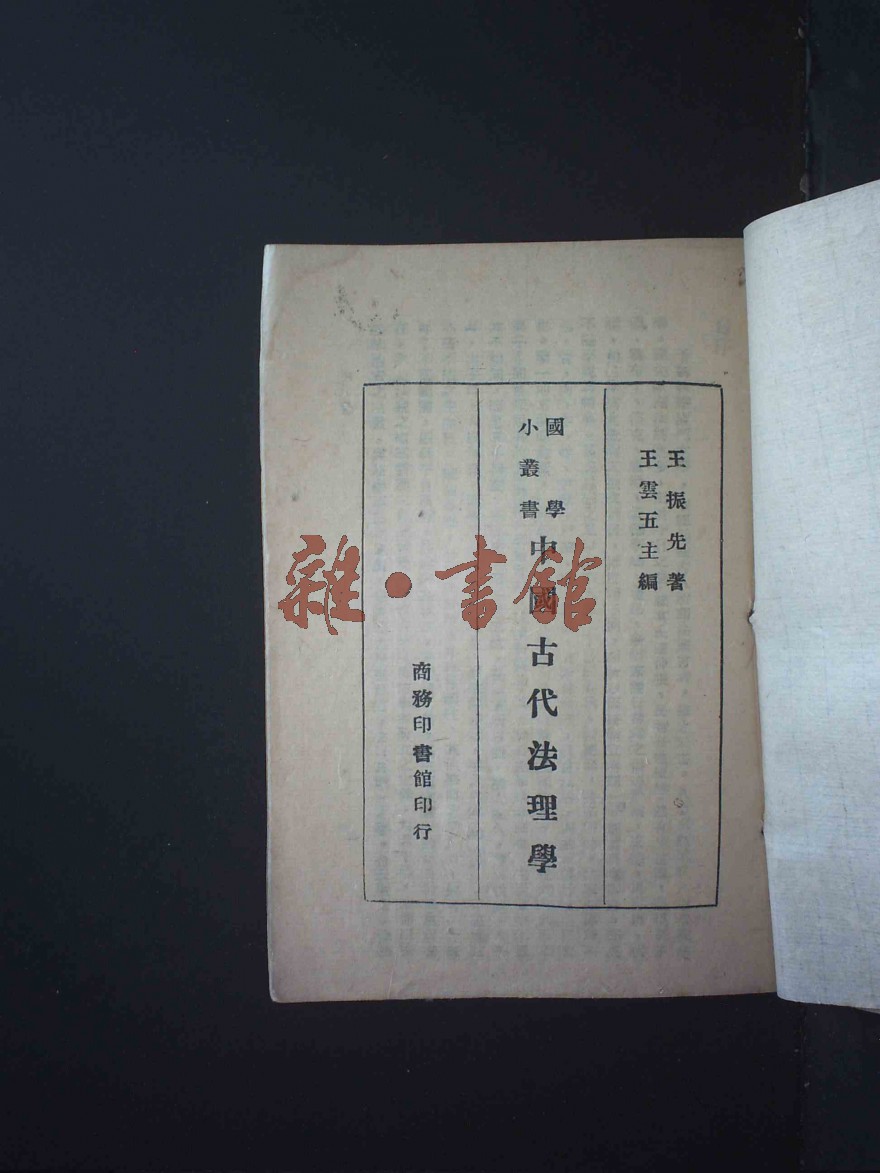 王振先著
王雲五主編
國學
小叢書
中國古代法理學
商務印書館印行
雜·書館